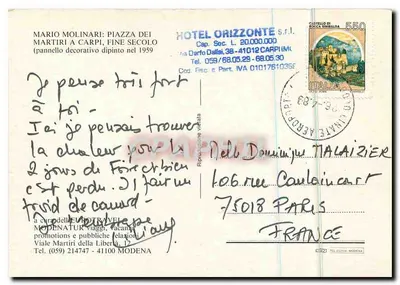 MARIO MOLINARI: PIAZZA DEI
MARTIRI A CARPI, FINE SECOLO
(pannello decorativo dipinto nel 1959
HOTEL ORIZZONTE s.r.l.
Cap. Soc. L. 20.000.000
Via Darfo Dallai, 38 - 41012 CARPI (MO)
Tel. 059 / 68.05.29 - 68.05.30
Cod. Fisc. e Part. IVA
CASTELLO DI
ROCCA SINIBALDA
550
ITALIA
LINATE AEROPORTO
Je pense très fort
à toi -
Et j'ai je pensais trouver
la chaleur pour les
2 jours de Foire et bien
c'est perdu. Il fait un
froid de canard -
Je t'embrasse
Melle Dominique MALAIZIER
106 rue Caulaincourt
75018 PARIS
FRANCE
Riproduzione vietata
a cura dell'EUROTRAVEL
MODENATUR viaggi, vacanze
promotions e pubbliche relazioni
Viale Martiri della Libertà, 12
Tel. (059) 214747 - 41100 MODENA